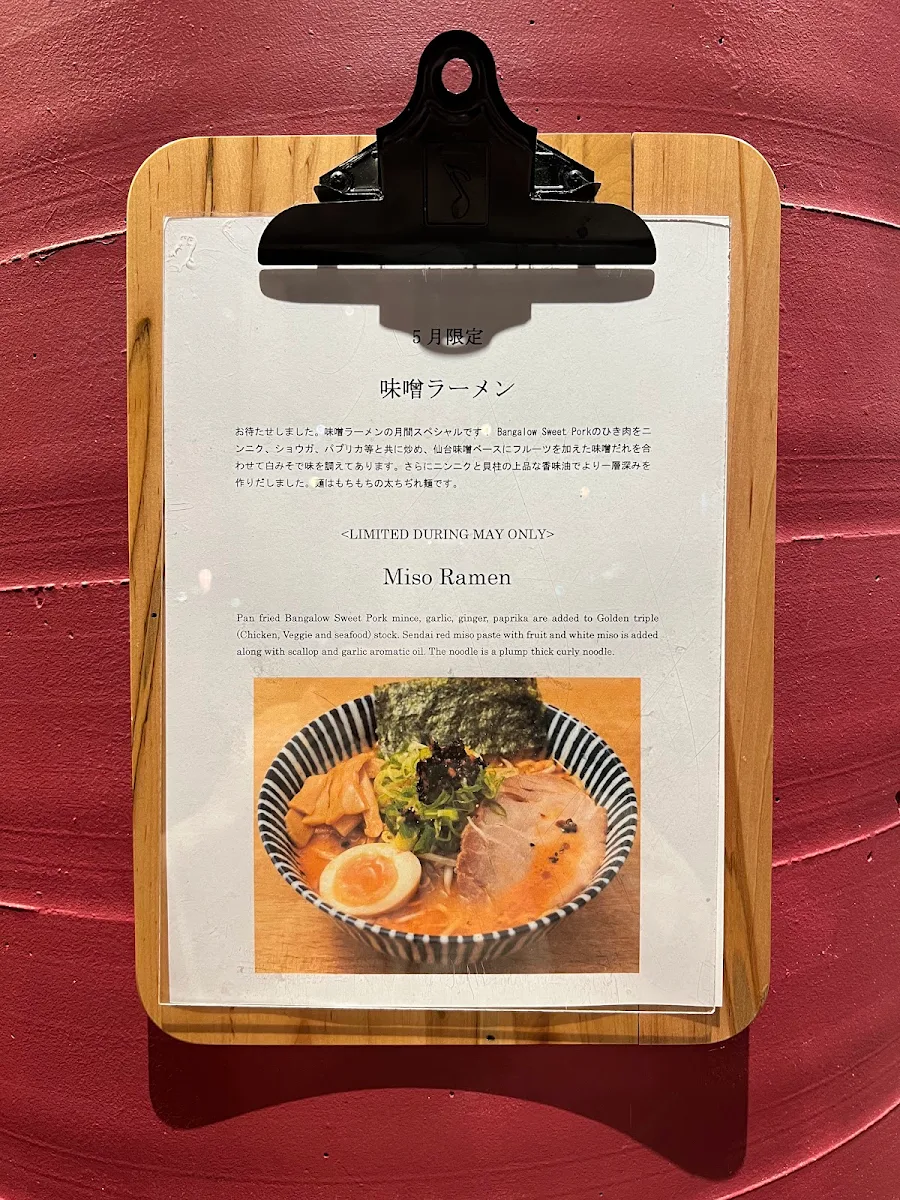 5月限定
味噌ラーメン
お待たせしました。味噌ラーメンの月間スペシャルです。 Bangalow Sweet Porkのひき肉をニ
ンニク、ショウガ、パプリカ等と共に炒め、仙台味噌ベースにフルーツを加えた味噌だれを合
わせて白みそで味を調えてあります。さらにニンニクと貝柱の上品な香味油でより一層深みを
作りだしました。麺はもちもちの太ちぢれ麺です。
<LIMITED DURING MAY ONLY>
Miso Ramen
Pan fried Bangalow Sweet Pork mince, garlic, ginger, paprika are added to Golden triple
(Chicken, Veggie and seafood) stock. Sendai red miso paste with fruit and white miso is added
along with scallop and garlic aromatic oil. The noodle is a plump thick curly noodle.